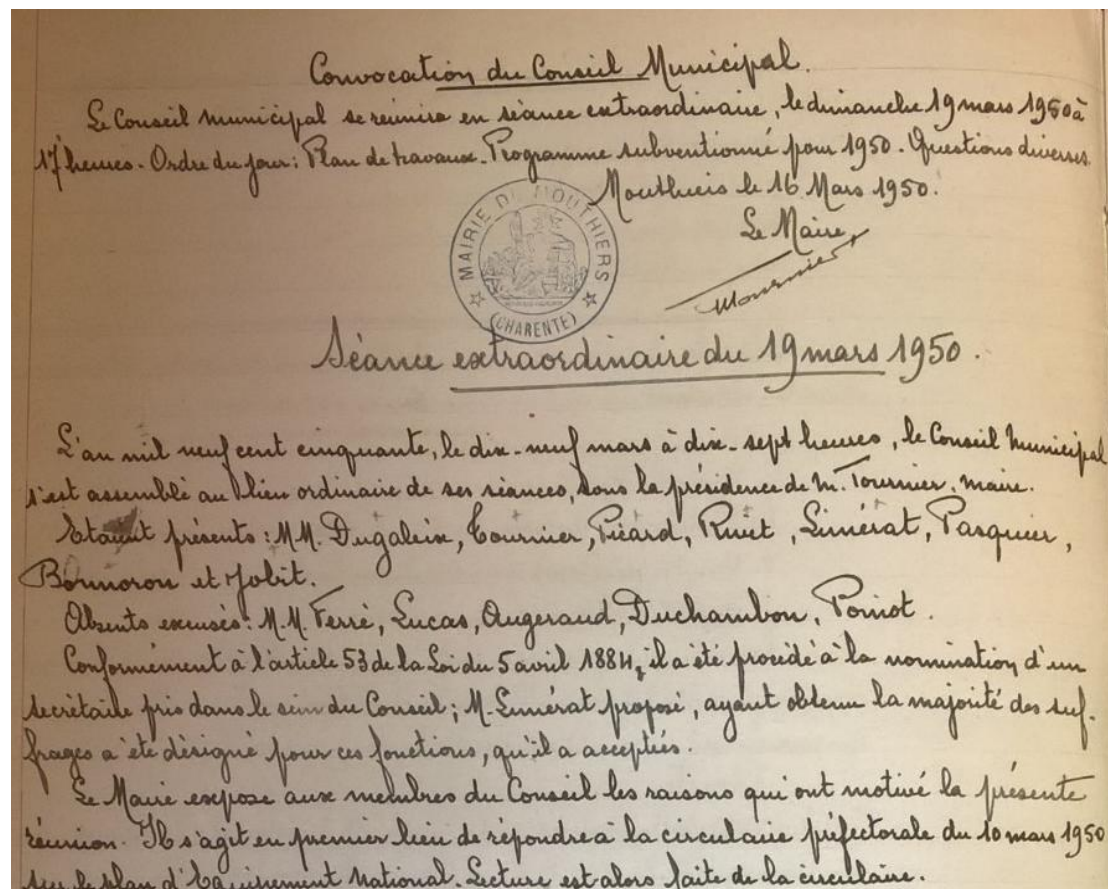 Convocation du Conseil Municipal.
Le Conseil municipal se réunira en séance extraordinaire, le dimanche 19 mars 1950 à
17 heures. Ordre du jour: Plan de travaux. Programme subventionné pour 1950. Questions diverses.
Mouthiers le 16 Mars 1950.
Le Maire,
MAIRIE DE MOUTHIERS
(CHARENTE)
Tournier
Séance extraordinaire du 19 mars 1950.
L'an mil neuf cent cinquante, le dix-neuf mars à dix-sept heures, le Conseil Municipal
s'est assemblé au lieu ordinaire de ses séances, sous la présidence de M. Tournier, maire.
Etaient présents: MM. Dugaleix, Tournier, Picard, Rivet, Limérat, Pasquier,
Bonnoron et Jobit.
Absents excusés: M.M. Ferré, Lucas, Augeraud, Duchambon, Poinot.
Conformément à l'article 53 de la Loi du 5 avril 1884, il a été procédé à la nomination d'un
secrétaire pris dans le sein du Conseil; M. Limérat proposé, ayant obtenu la majorité des suf-
frages a été désigné pour ces fonctions, qu'il a acceptées.
Le Maire expose aux membres du Conseil les raisons qui ont motivé la présente
réunion. Il s'agit en premier lieu de répondre à la circulaire préfectorale du 10 mars 1950
sur le plan d'Equipement National. Lecture est alors faite de la circulaire.